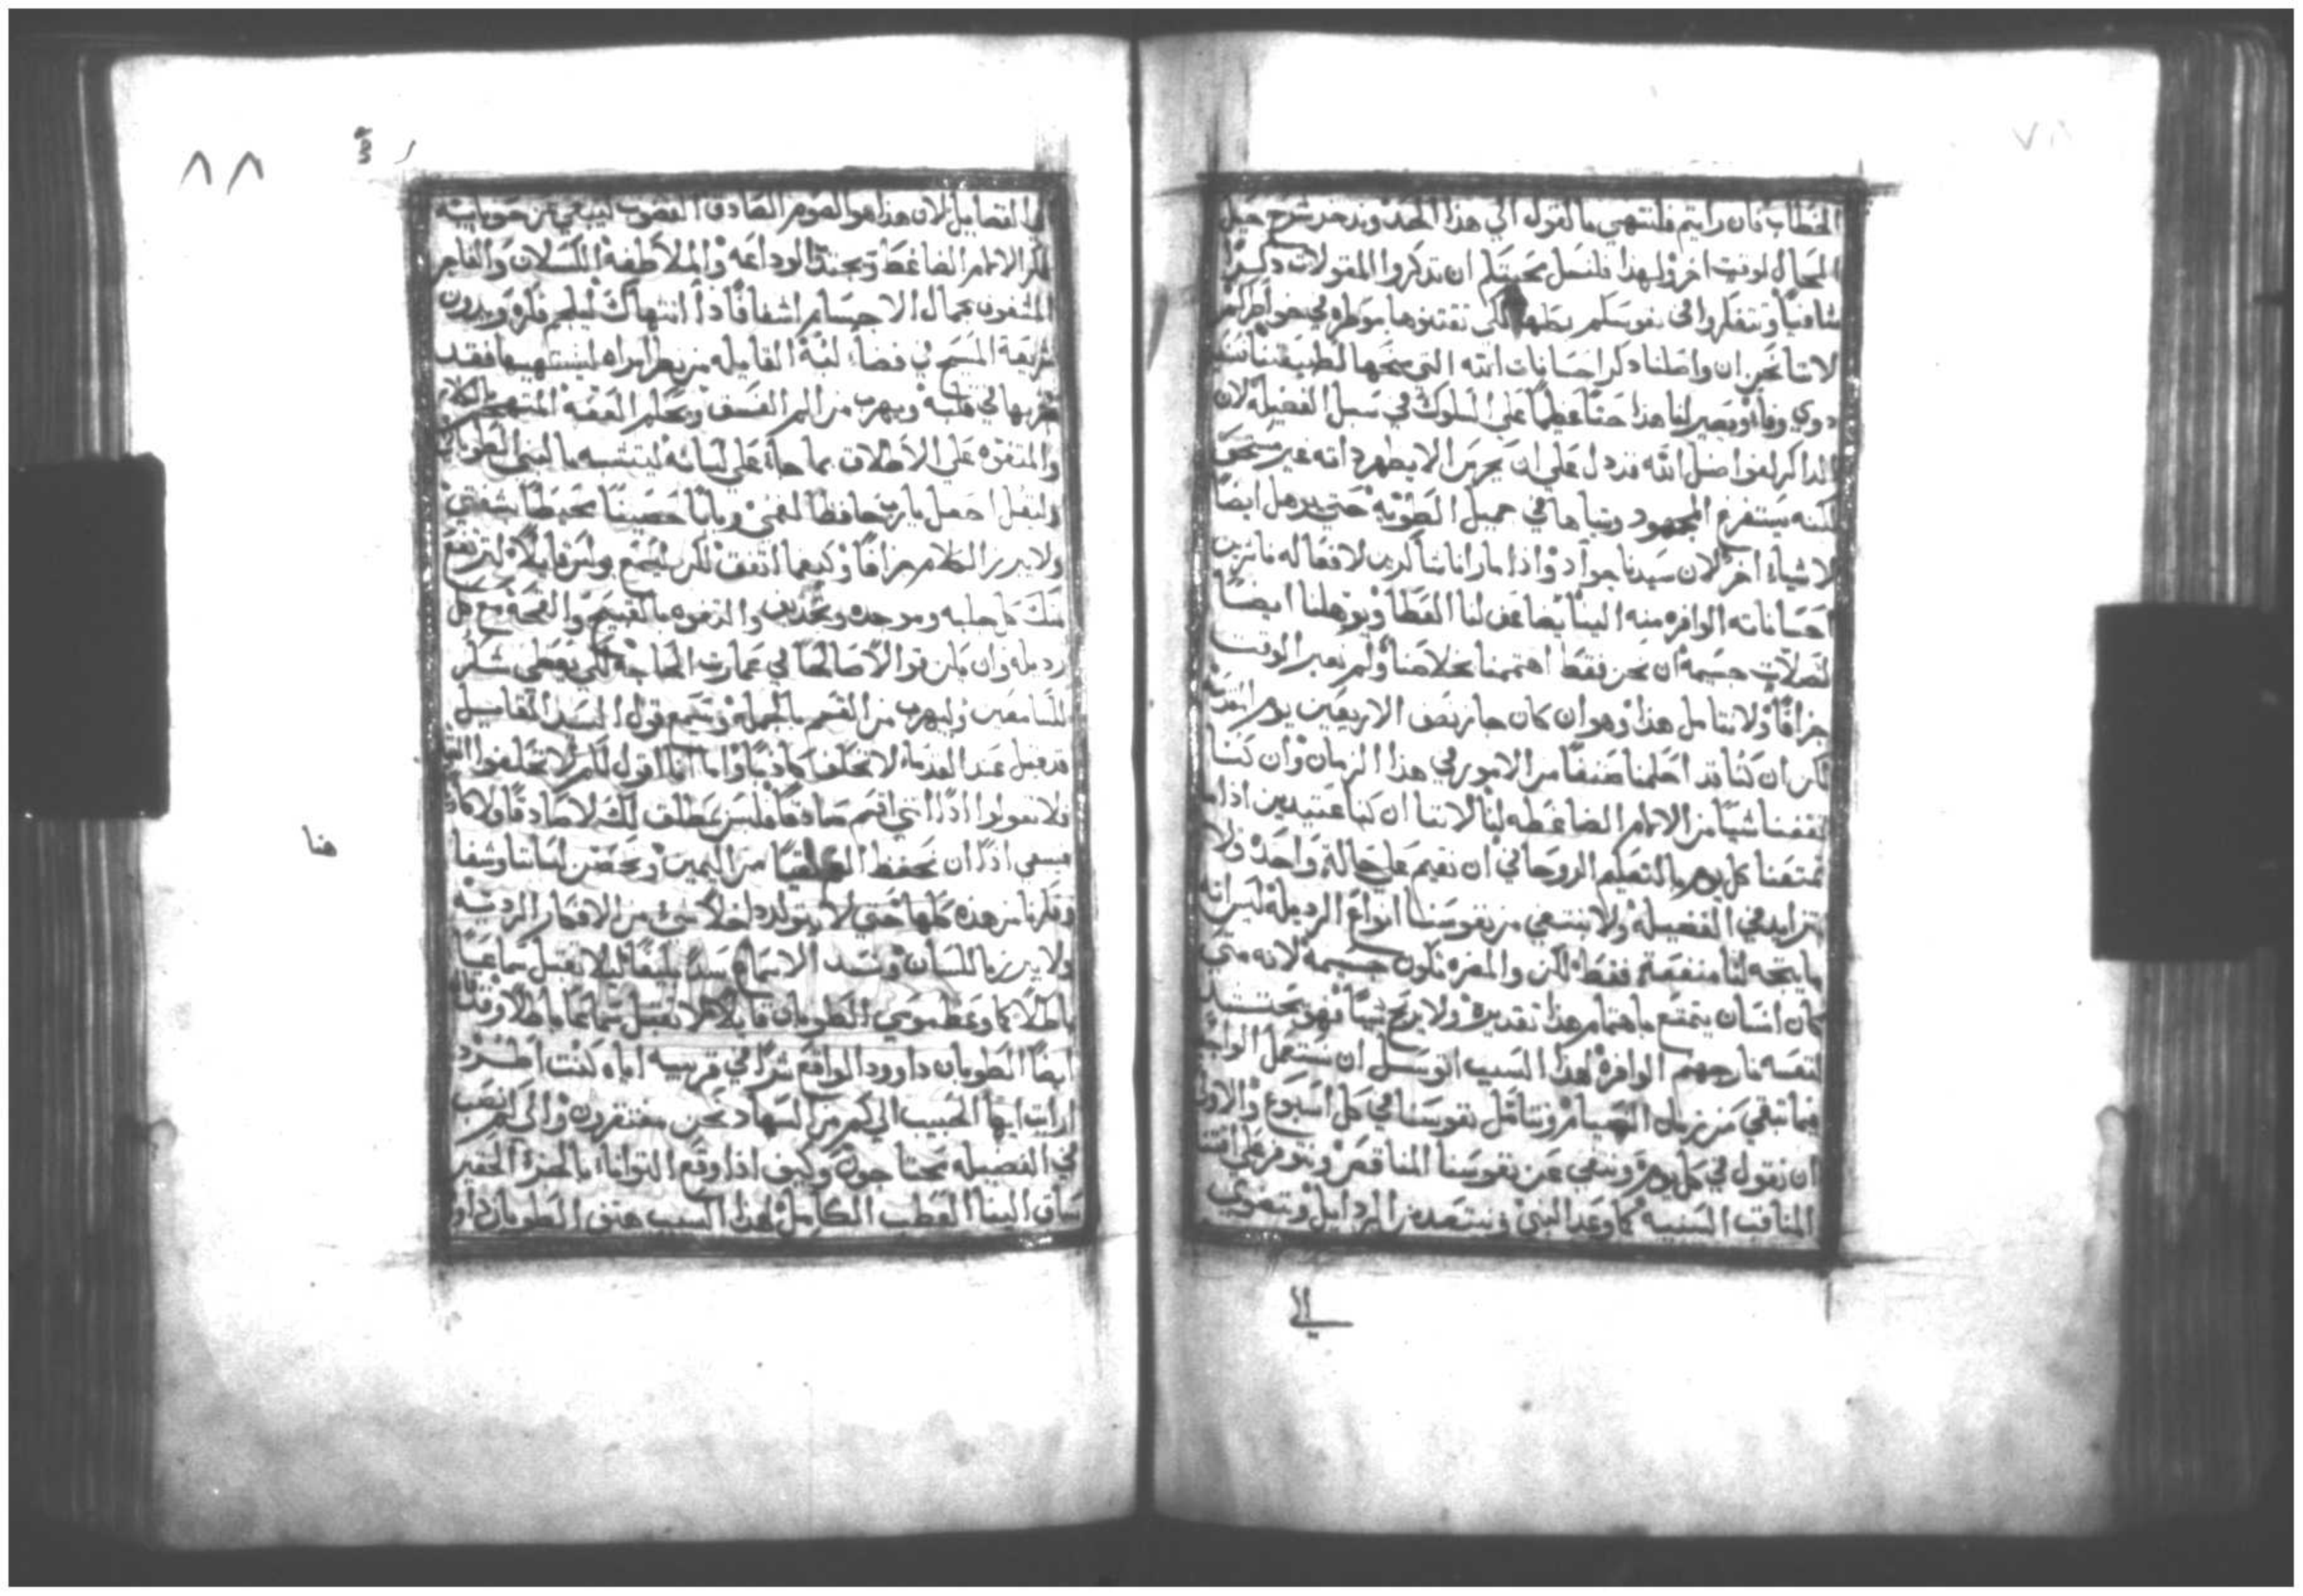 الخطاب فان رايتم فلننتهي بالقول الي هذا الحد وندخر شرح
المجال لوقت اخر ولهذا فلنسل محبتكم ان تذكروا المقولات ذكرًا
شافيًا وتتفكروا في نفوسكم
لاننا نحن ان واصلنا ذكر احسانات الله التي منحها لطبيعتنا
ذوي وفاء ويصير لنا هذا حثًا عظيمًا علي السلوك في سبل الفضيلة لان
الذاكر لفواضل الله قد دل علي ان غير مستحق
لكنه يستفرغ المجهود في جميل الطوية حتي يوهل ايضًا
لاشياء اخر لان سيدنا جواد واذا ما رانا شاكرين لافعاله
احساناته الوافره منه الينا يضاعف لنا العطا ويوهلنا ايضًا
لصلات جسيمه ان نحن فقط اهتممنا بخلاصنا ولم نعبر الوقت
جزافًا ولا نتامل هذا وهو ان كان جاز نصف الاربعين يوم
لكن ان كنا قد احكمنا صنفًا من الامور في هذا الزمان وان كنا
شيًا من الالام الضاغطه لنا لاننا ان كنا عتيدين اذا ما
تمتعنا كل يوم بالتعليم الروحاني ان نقيم علي حالة واحد ولا
نتزايد في الفضيله ولا ننتفي من نفوسنا انواع الرديله ليس انه
ما يتجه لنا منفعة فقط لكن والمضره تكون جسيمه لانه متي
كان انسان يتمتع باهتمام هذا تقديره ولا يربح شيًا فهو يحتشد
لنفسه نار جهنم الوافره لهذا السبب اتوسل ان نستعمل الواجب
فيما تبقي من زمان الصيام ونتامل نفوسنا في كل اسبوع والاولي
ان نقول في كل يوم وننفي عن نفوسنا المناقص
المناقب السنيه كما وعد النبي ونبتعد من الرذايل ونتضوي
الي
٨٨
الفضايل لان هذا هو الصوم الصادق الغضوب ليتقي من
فكر الالام الضاغطة ويجتذب الوداعه والملاطفه الكسلان والفاجر
المشغوف بجمال الاجسام اشفاقًا ذا انتهاك ليلجم فكره ويدون
شريعة المسيح في فضاء لبه القايله من نظر امراه ليشتهيها فقد
بها في قلبه ويهرب من الم الفسق ويحكم العفه المتهجر الكلام
والمتفوه علي الاطلاق بما جاء علي لسانه ليتشبه بالنبي الطوباني
وليقل اجعل يارب حافظًا لفمي وبابًا حصينًا محيطًا بشفتي
ولا يبرز الكلام جزافًا وكيفما اتفق لكن ليسمع بولس قايلا لترتفع
منك كل جلبه وموجده وتجديف والتفوه بالقبيح والقحة مع كل
رذيله وان يكن قولا صالحًا في عمارت الحاجه لكي يعطي شكر
للسامعين وليهرب من القسم بالجمله وتسمع قول السيد القايل
قد قيل عند القدماء لا تحلف كاذبًا واما انا اقول لكم لا تحلفوا البته
فلا تقولوا اذًا انني اقسم صادقًا فليس يطلق لك لا صادقًا ولا كاذبًا
فينبغي اذًا ان نحفظ من اليمين ونحصن لساننا وشفا
وفكرنا من هذه كلها حتي لا يتولد داخلاً شيء من الافكار الرديه
ولا يبرز باللسان ونسد الاسماع سدًا بليغًا ليلا نقبل سماعًا
باطلا كما وعظ موسي الطوبان قايلا لا تقبل سماعًا باطلا وقال
ايضًا الطوبان داوود الواقع شرًا في قريبه اياه كنت اطرد
ارايت ايها الحبيب الي كم من السهاد نحن مفتقرون والي كم نصب
في الفضيله محتاجون وكيف اذا وقع التوانا بالجزء الحقير
ساق الينا العطب الكامل لهذا السبب هتف الطوبان داوو
هنا